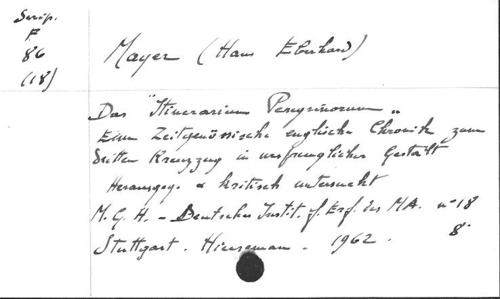 Scrip.
F
86
(18)
Mayer (Hans Eberhard)
Das "Itinerarium Peregrinorum"
Eine Zeitgenössische englische Chronik zum
dritten Kreuzzug in ursprunglicher Gestalt
Herausgeg. & kritisch untersucht
M.G.H. - Deutsches Instit. f. Erf. des MA. n° 18
Stuttgart. Hiersemann. 1962. 8°